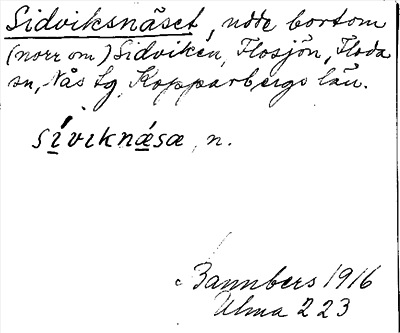 Sidviksnäset, udde bortom
(norr om) Sidviken, Flosjön, Floda
sn, Nås Lg, Kopparbergs län.
síviknǽsæ, n.
Bannbers 1916
Ulma 223